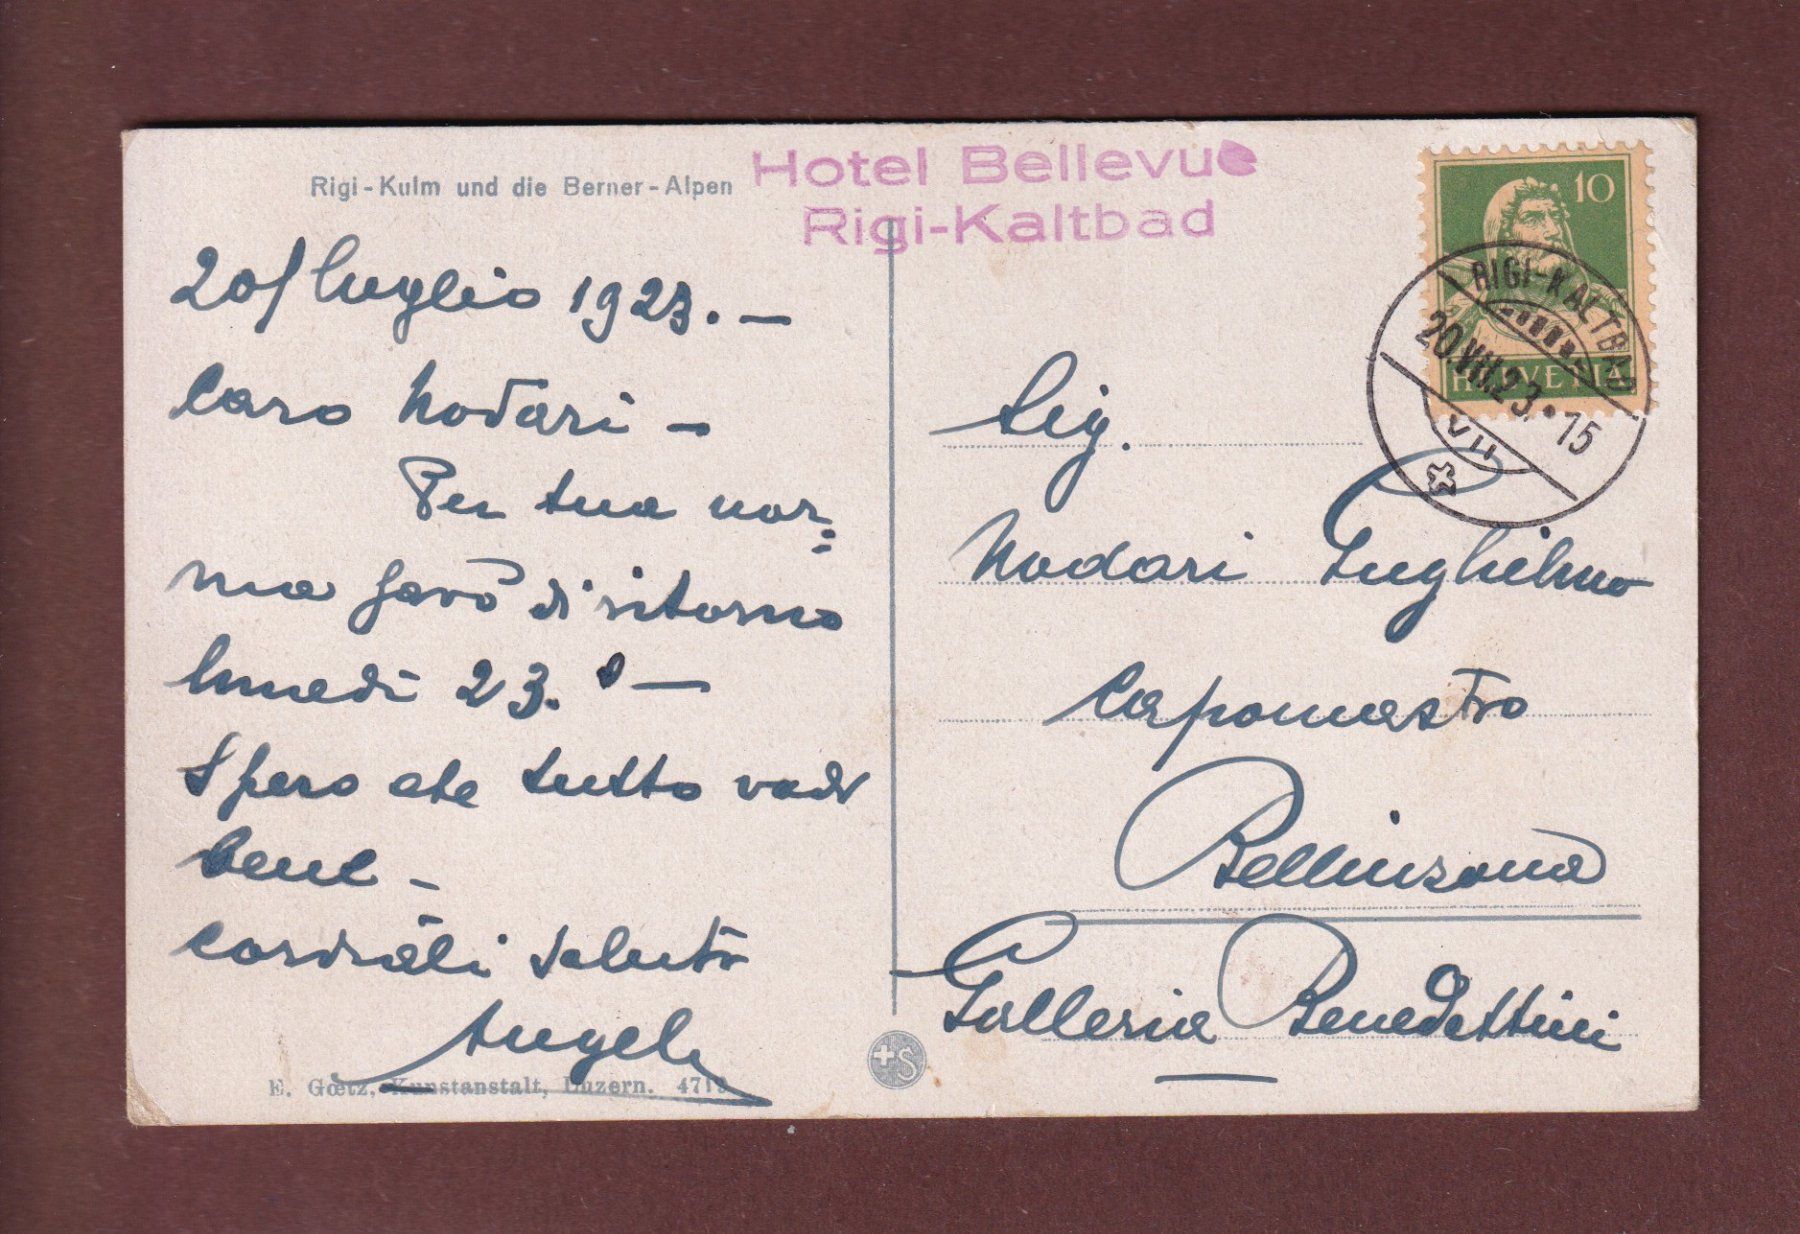 Rigi-Kulm und die Berner-Alpen
Hotel Bellevue
Rigi-Kaltbad
20/luglio 1923. —
Caro Nodari —
Per tua nor=
ma sarò di ritorno
lunedì 23. —
Spero che tutto vadi
bene —
Cordiali saluti
Angelo
E. Gœtz, Kunstanstalt, Luzern. 4719
+S
10
HELVETIA
RIGI-KALTBAD
20.VII.23.•15
VII
Sig.
Nodari Guglielmo
Capomastro
Bellinzona
Galleria Benedettini